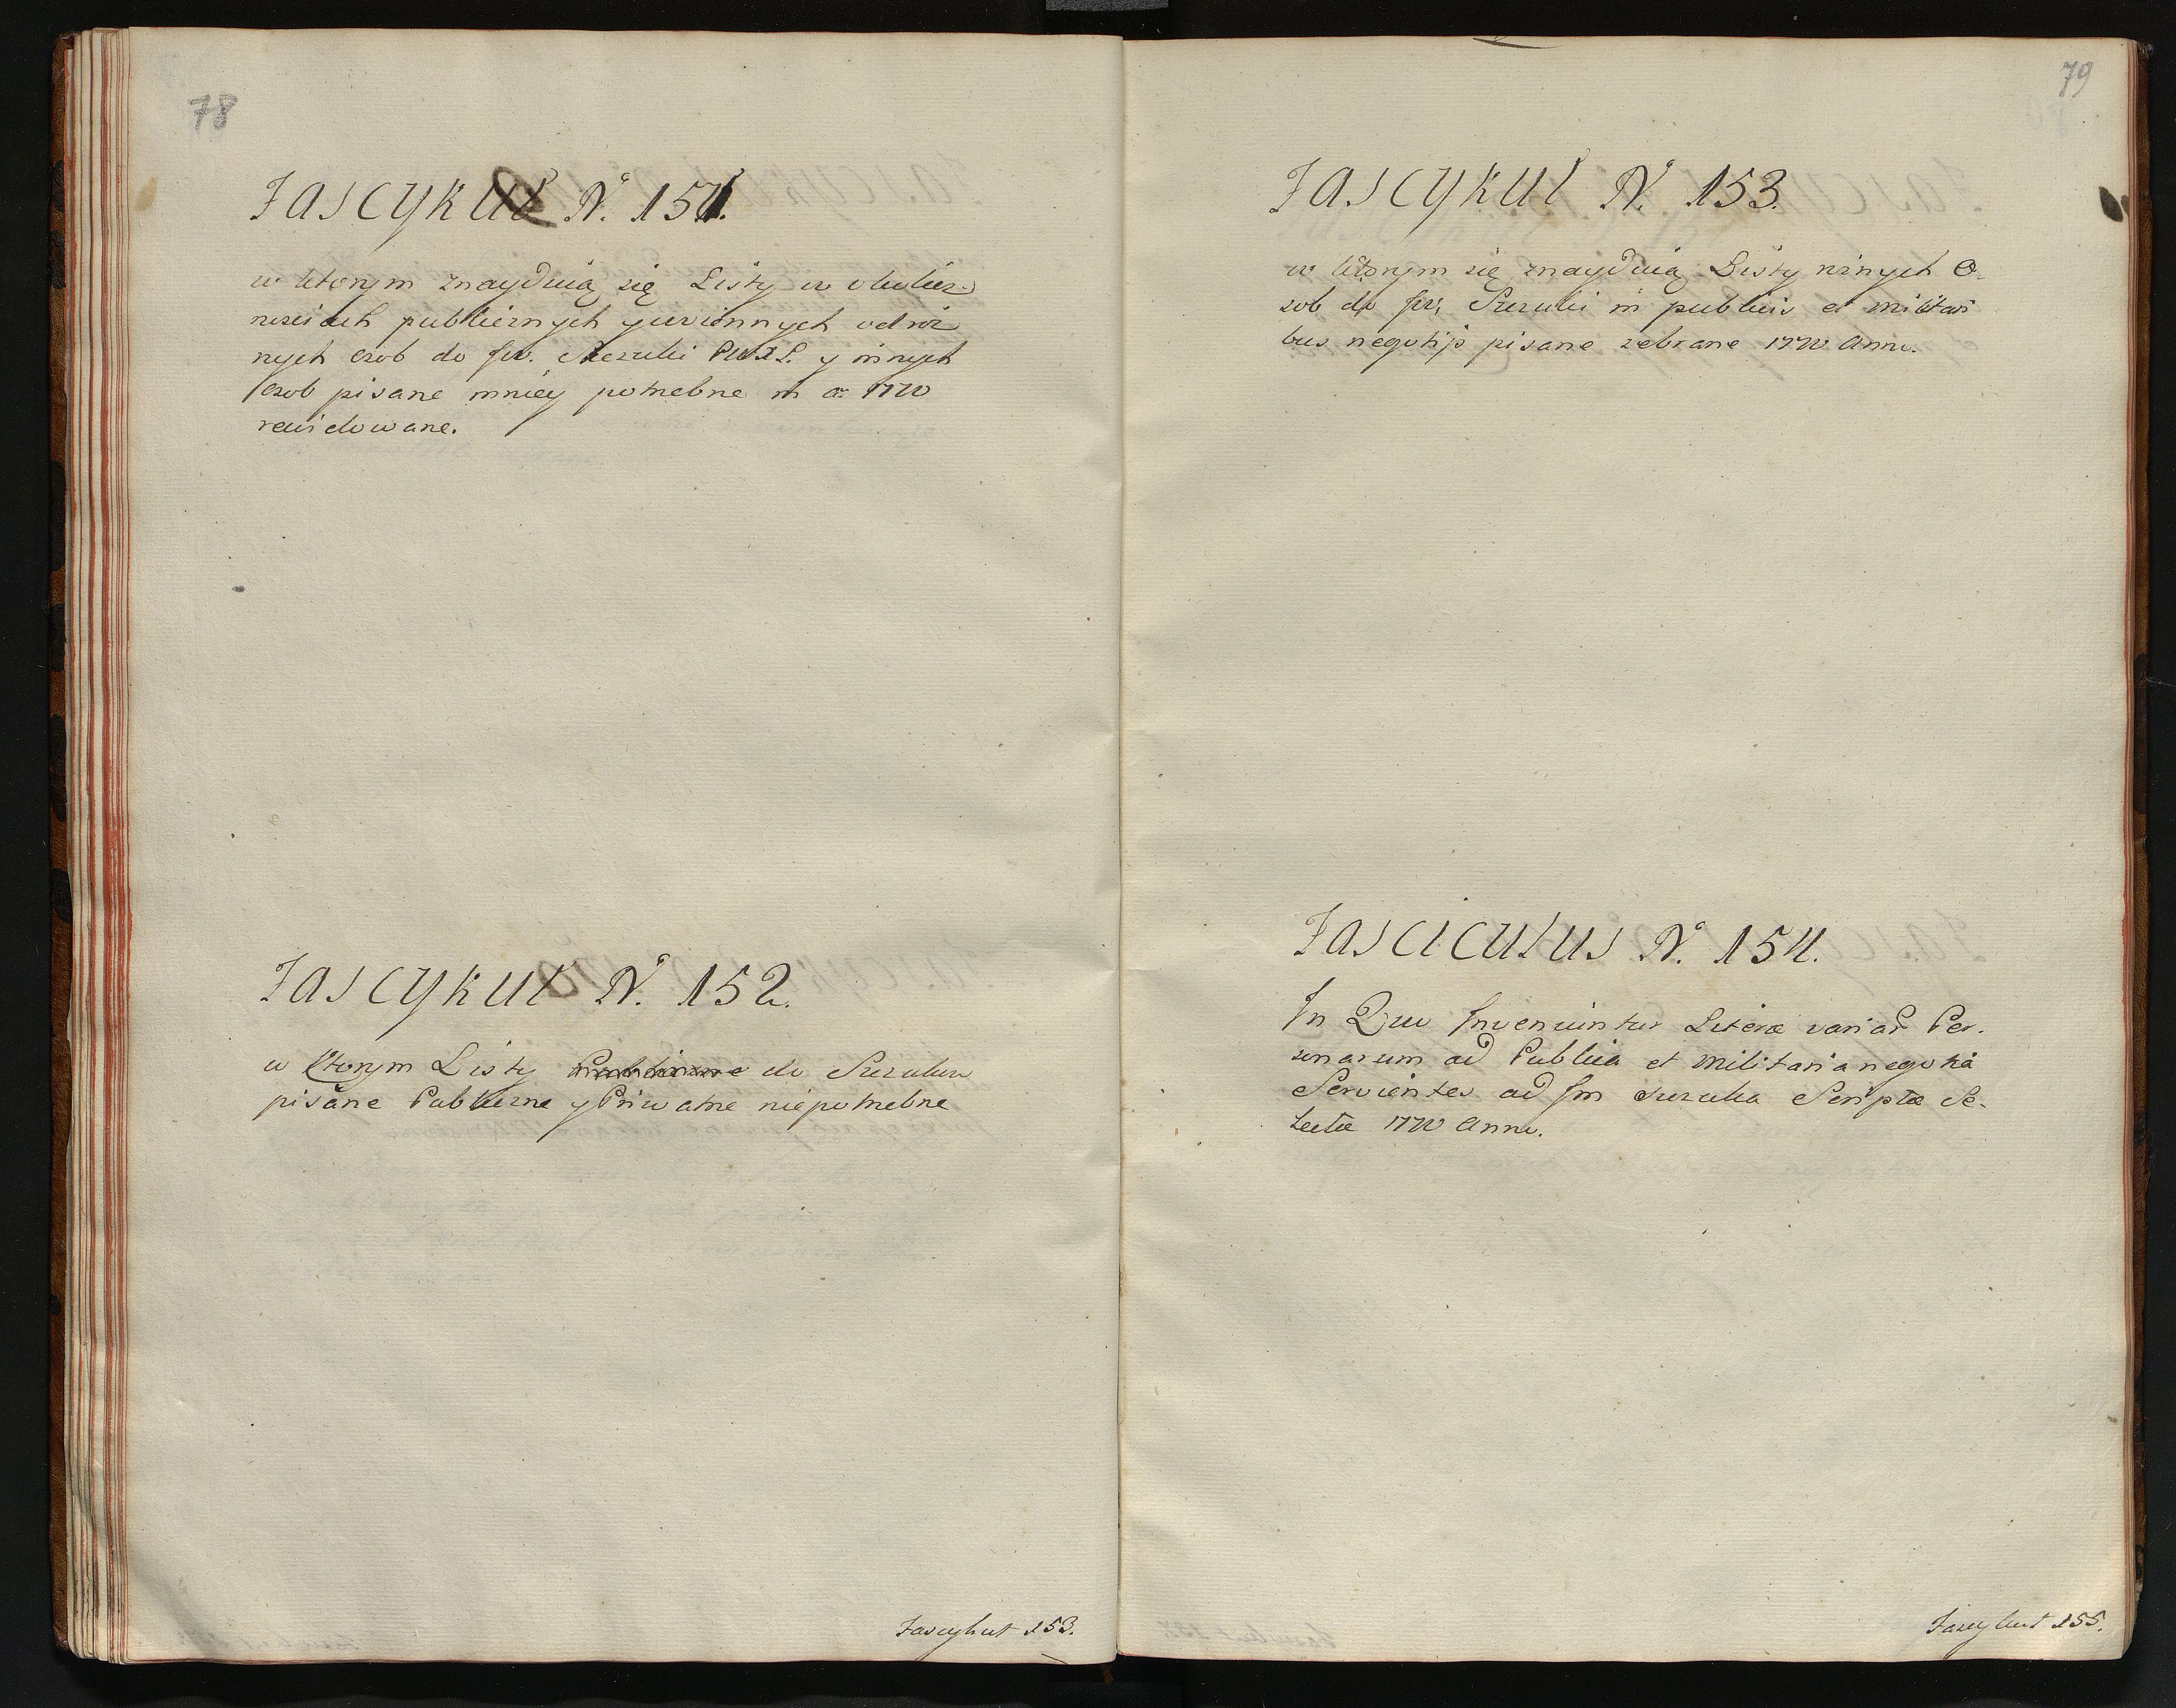 78
Fascykuł No. 151.
w ktorym znayduią się Listy w okolicz=
nosciach publicznych y winnych od roż
nych osob do Jw. Szczuki PWXL. y innych
osob pisane mniey potrzebne in ao 1770
rewidowane.
Fascykuł No. 152.
w ktorym Listy do Szczuków
pisane Publiczne y Priwatne niepotrzebne
Fascykuł 153.
79
Fascykuł No. 153.
w ktorym się znayduią Listy rżnych O-
sob do Jw, Szczuki in publicis et militari
bus negotijs pisane zebrane 1770 Anno.
Fasciculus No. 154.
In Quo Inveniuntur Literæ variar Per-
sonarum ad Publica et Militaria negotia
Servientes ad Jm Szczuka Scriptæ Se-
lectæ 1770 Anno.
Fascykuł 155.